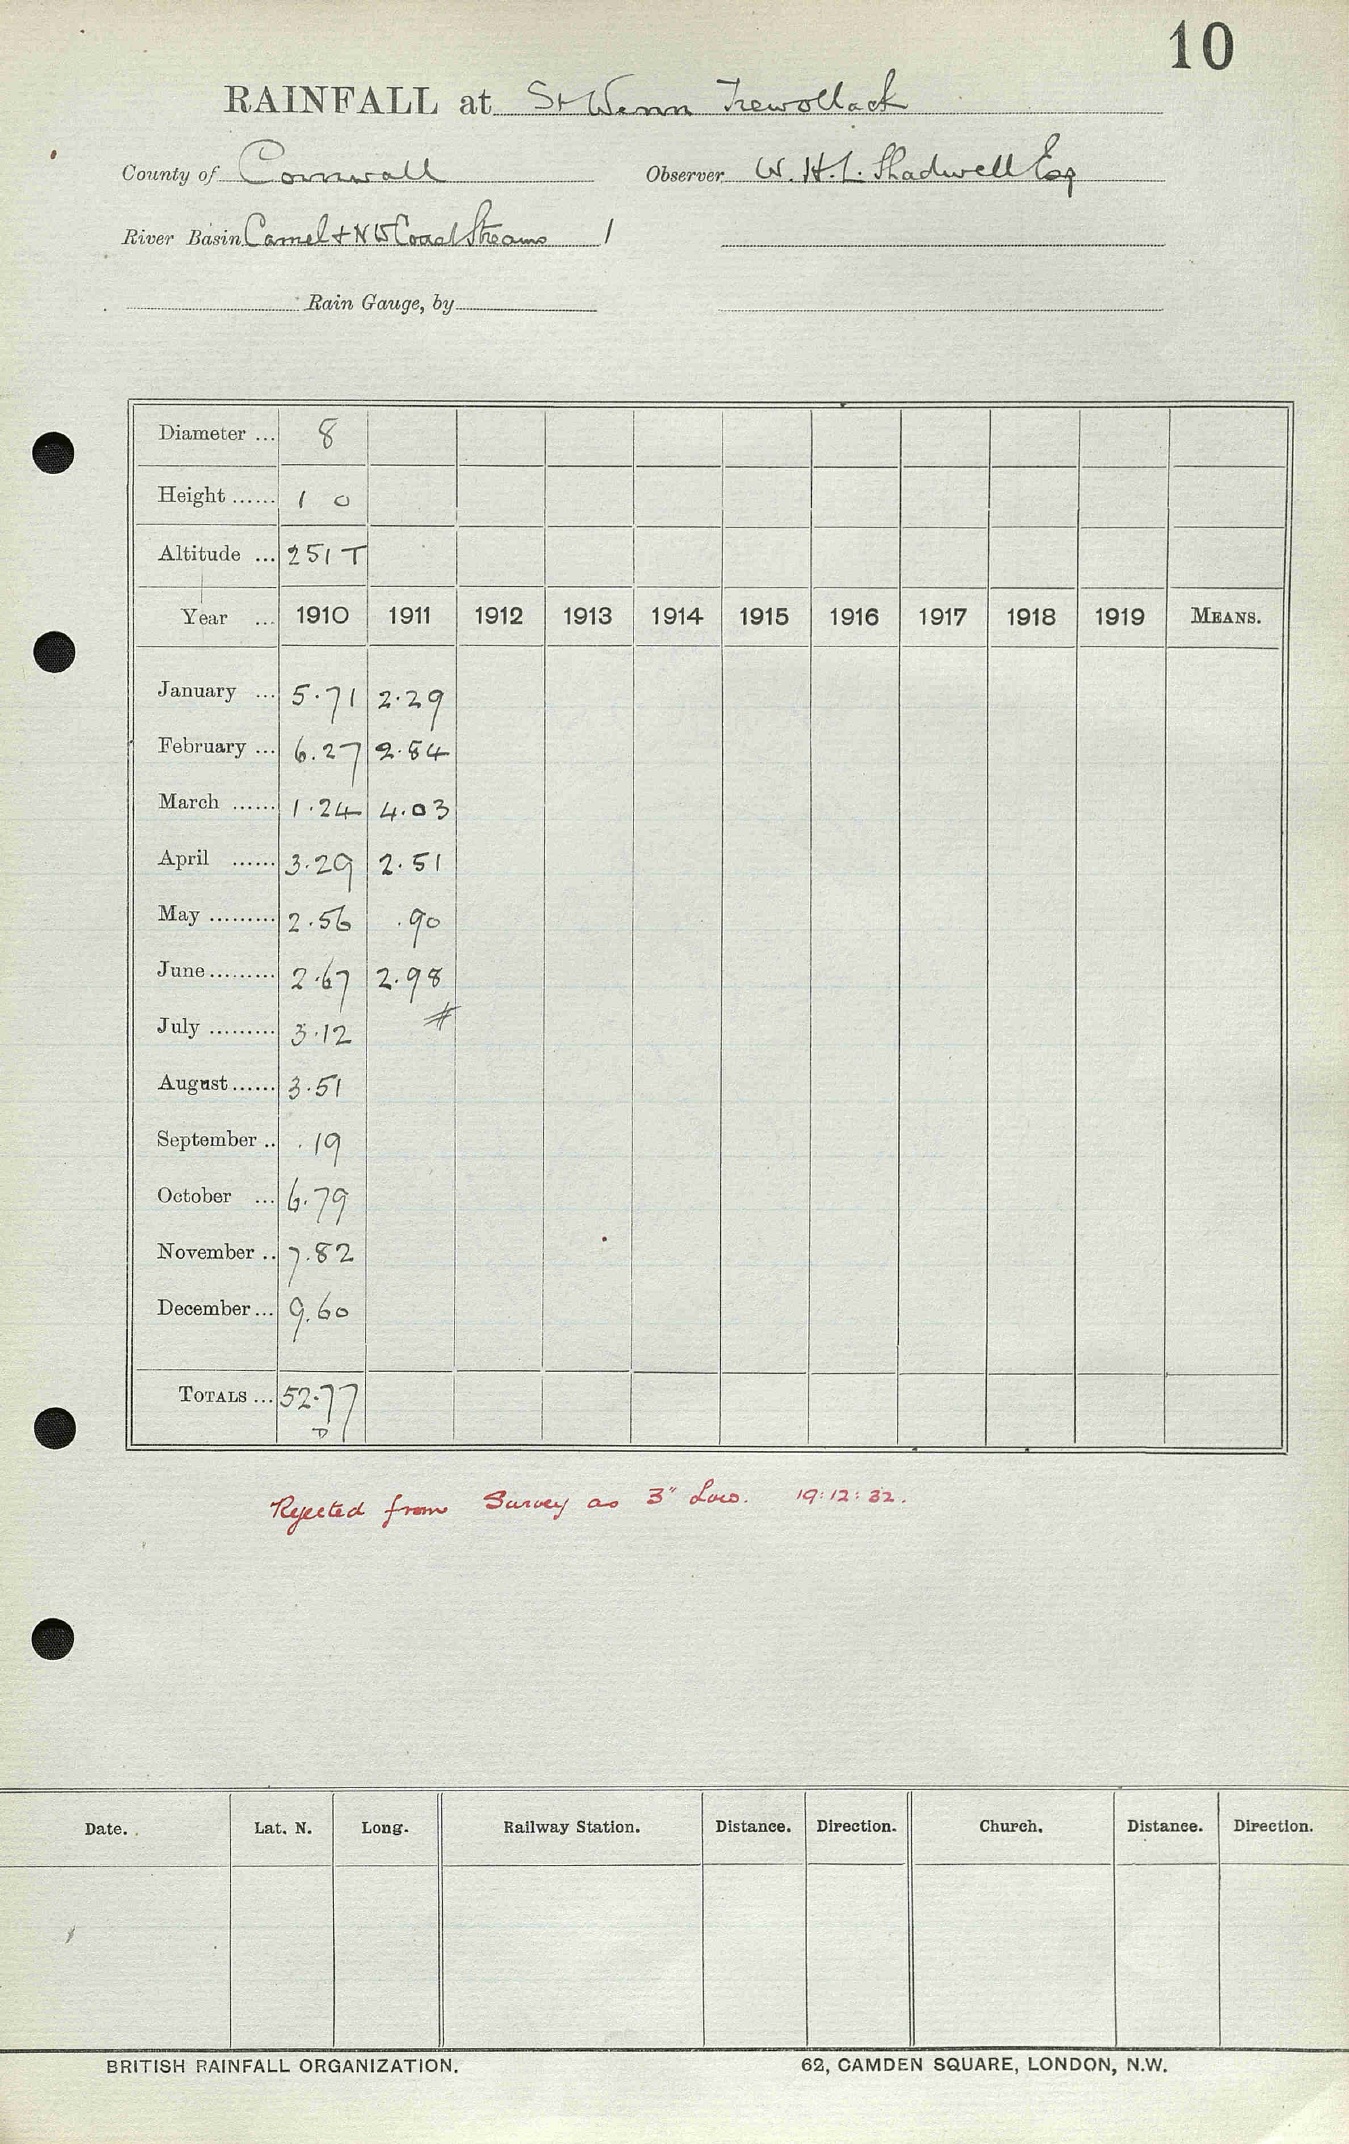 10
RAINFALL at St Wenn Trewollack
County of Cornwall Observer W. H. L. Shadwell Esq
River Basin Camel + N W Coast Streams 1
Rain Gauge, by
Diameter ... 8
Height ...... 1 0
Altitude ... 251 T
Year ... 1910 1911 1912 1913 1914 1915 1916 1917 1918 1919 MEANS.
January ... 5.71 2.29
February ... 6.27 2.84
March ...... 1.24 4.03
April ...... 3.29 2.51
May ......... 2.56 .90
June ......... 2.67 2.98
July ......... 3.12 #
August ...... 3.51
September .. .19
October ... 6.79
November .. 7.82
December ... 9.60
TOTALS ... 52.77
D
Rejected from Survey as 3" Low. 19:12:32.
Date. Lat. N. Long. Railway Station. Distance. Direction. Church. Distance. Direction.
BRITISH RAINFALL ORGANIZATION. 62, CAMDEN SQUARE, LONDON, N.W.